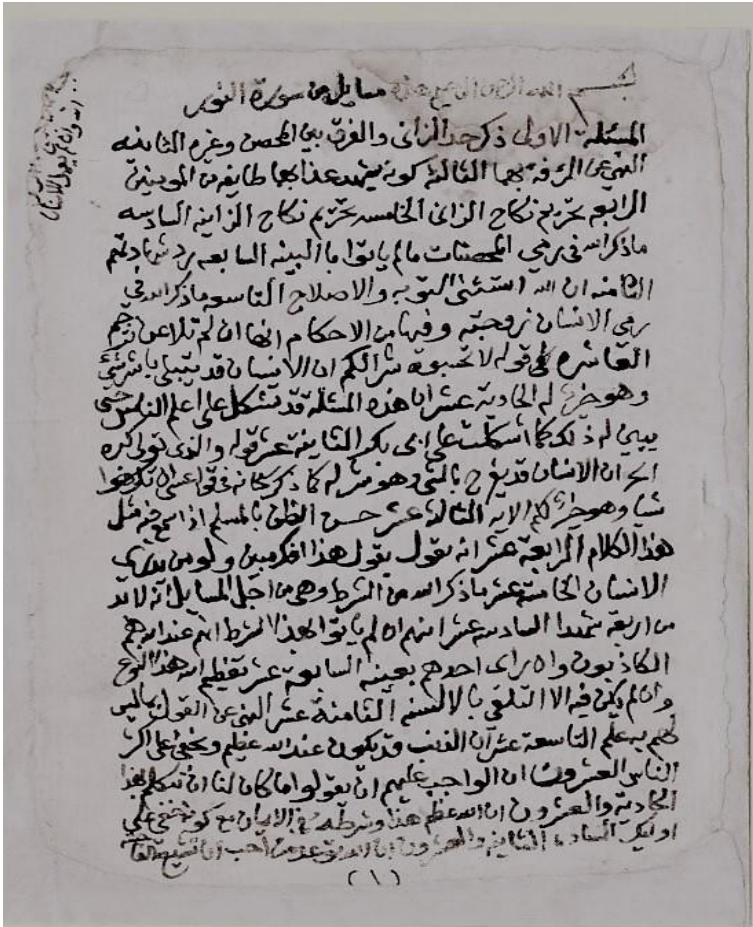 بسم الله الرحمن الرحيم مسايل من سورة النور
المسئلة الاولى ذكر حد الزاني والفرق بين المحصن وغيره الثانيه
النهي عن الرافة بهما الثالثة كونه يشهد عذابهما طايفه من المومنين
الرابعه تحريم نكاح الزاني الخامسه تحريم نكاح الزاينه السادسه
ماذكر الله في رمي المحصنات مالم ياتوا بالبينه السابعه رد شهادتهم
الثامنه ان الله استثنى التوبه والاصلاح التاسعه ماذكر الله في
رمي الانسان زوجته وفيها من الاحكام انها ان لم تلاعن ترجم
العاشره قوله لا تحسبوه شرا لكم ان الانسان قد يبتلى بشئ
وهو خير له الحادية عشر ان هذه المسئلة قد تشكل على اعلم الناس حتى
يبين له ذلك كما اشكلت على ابي بكر الثانية عشر قوله والذي تولى كبره
ان الانسان قد يفرح بالشي وهو شر له كما ذكر في قوله عسى ان تكرهوا
شيا وهو خير لكم الايه الثالثة عشر حسن الظن بالمسلم اذا سمع فيه مثل
هذا الكلام الرابعة عشر انه يقول هذا افك مبين ولو من
الانسان الخامسة عشر ماذكر الله من الشرط وهي من اجل المسايل انه لا بد
من اربعة شهدا السادسه عشر انهم ان لم ياتوا بهذا الشرط انهم عند الله هم
الكاذبون وان راى احدهم بعينه السابعه عشر تعظيم الله هذا النوع
وان لم يكن فيه الا التلقي بالالسنه الثامنة عشر النهي عن القول بما ليس
لهم به علم التاسعة عشر ان الذنب قد يكون عند الله عظيم ويخفى على اكثر
الناس العشرون ان الواجب عليهم ان يقولوا ما كان لنا ان نتكلم بهذا
الحادية والعشرون ان الله عظم هذا وشرطه في الايمان مع كونه يخفى على
اوليك السادة الثانية والعشرون ان الله توعد من احب ان تشيع الفاحشة
(١)